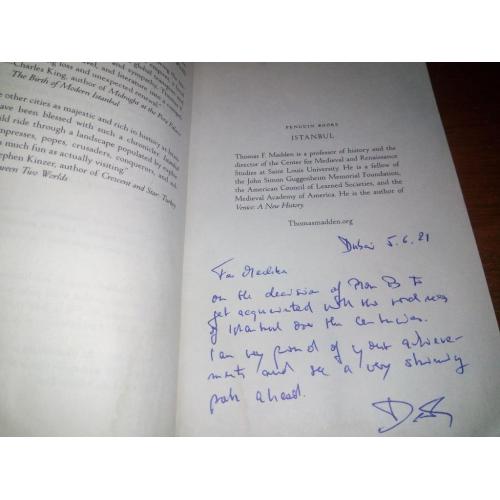 global
and literature
loss and unexpected renewal."
Charles King, author of Midnight at the Pera Palace:
The Birth of Modern Istanbul
other cities as majestic and rich in history as
have been blessed with such a chronicle,
ride through a landscape populated by
empresses, popes, crusaders, conquerors, and
much fun as actually visiting."
Stephen Kinzer, author of Crescent and Star: Turkey
Between Two Worlds
PENGUIN BOOKS
ISTANBUL
Thomas F. Madden is a professor of history and the
director of the Center for Medieval and Renaissance
Studies at Saint Louis University. He is a fellow of
the John Simon Guggenheim Memorial Foundation,
the American Council of Learned Societies, and the
Medieval Academy of America. He is the author of
Venice: A New History.
Thomasmadden.org
Dubai 5.6.21
For
on the decision of to
get acquainted with the
of Istanbul over the centuries.
I am very proud of your achieve-
ments and see a very shining
path ahead.